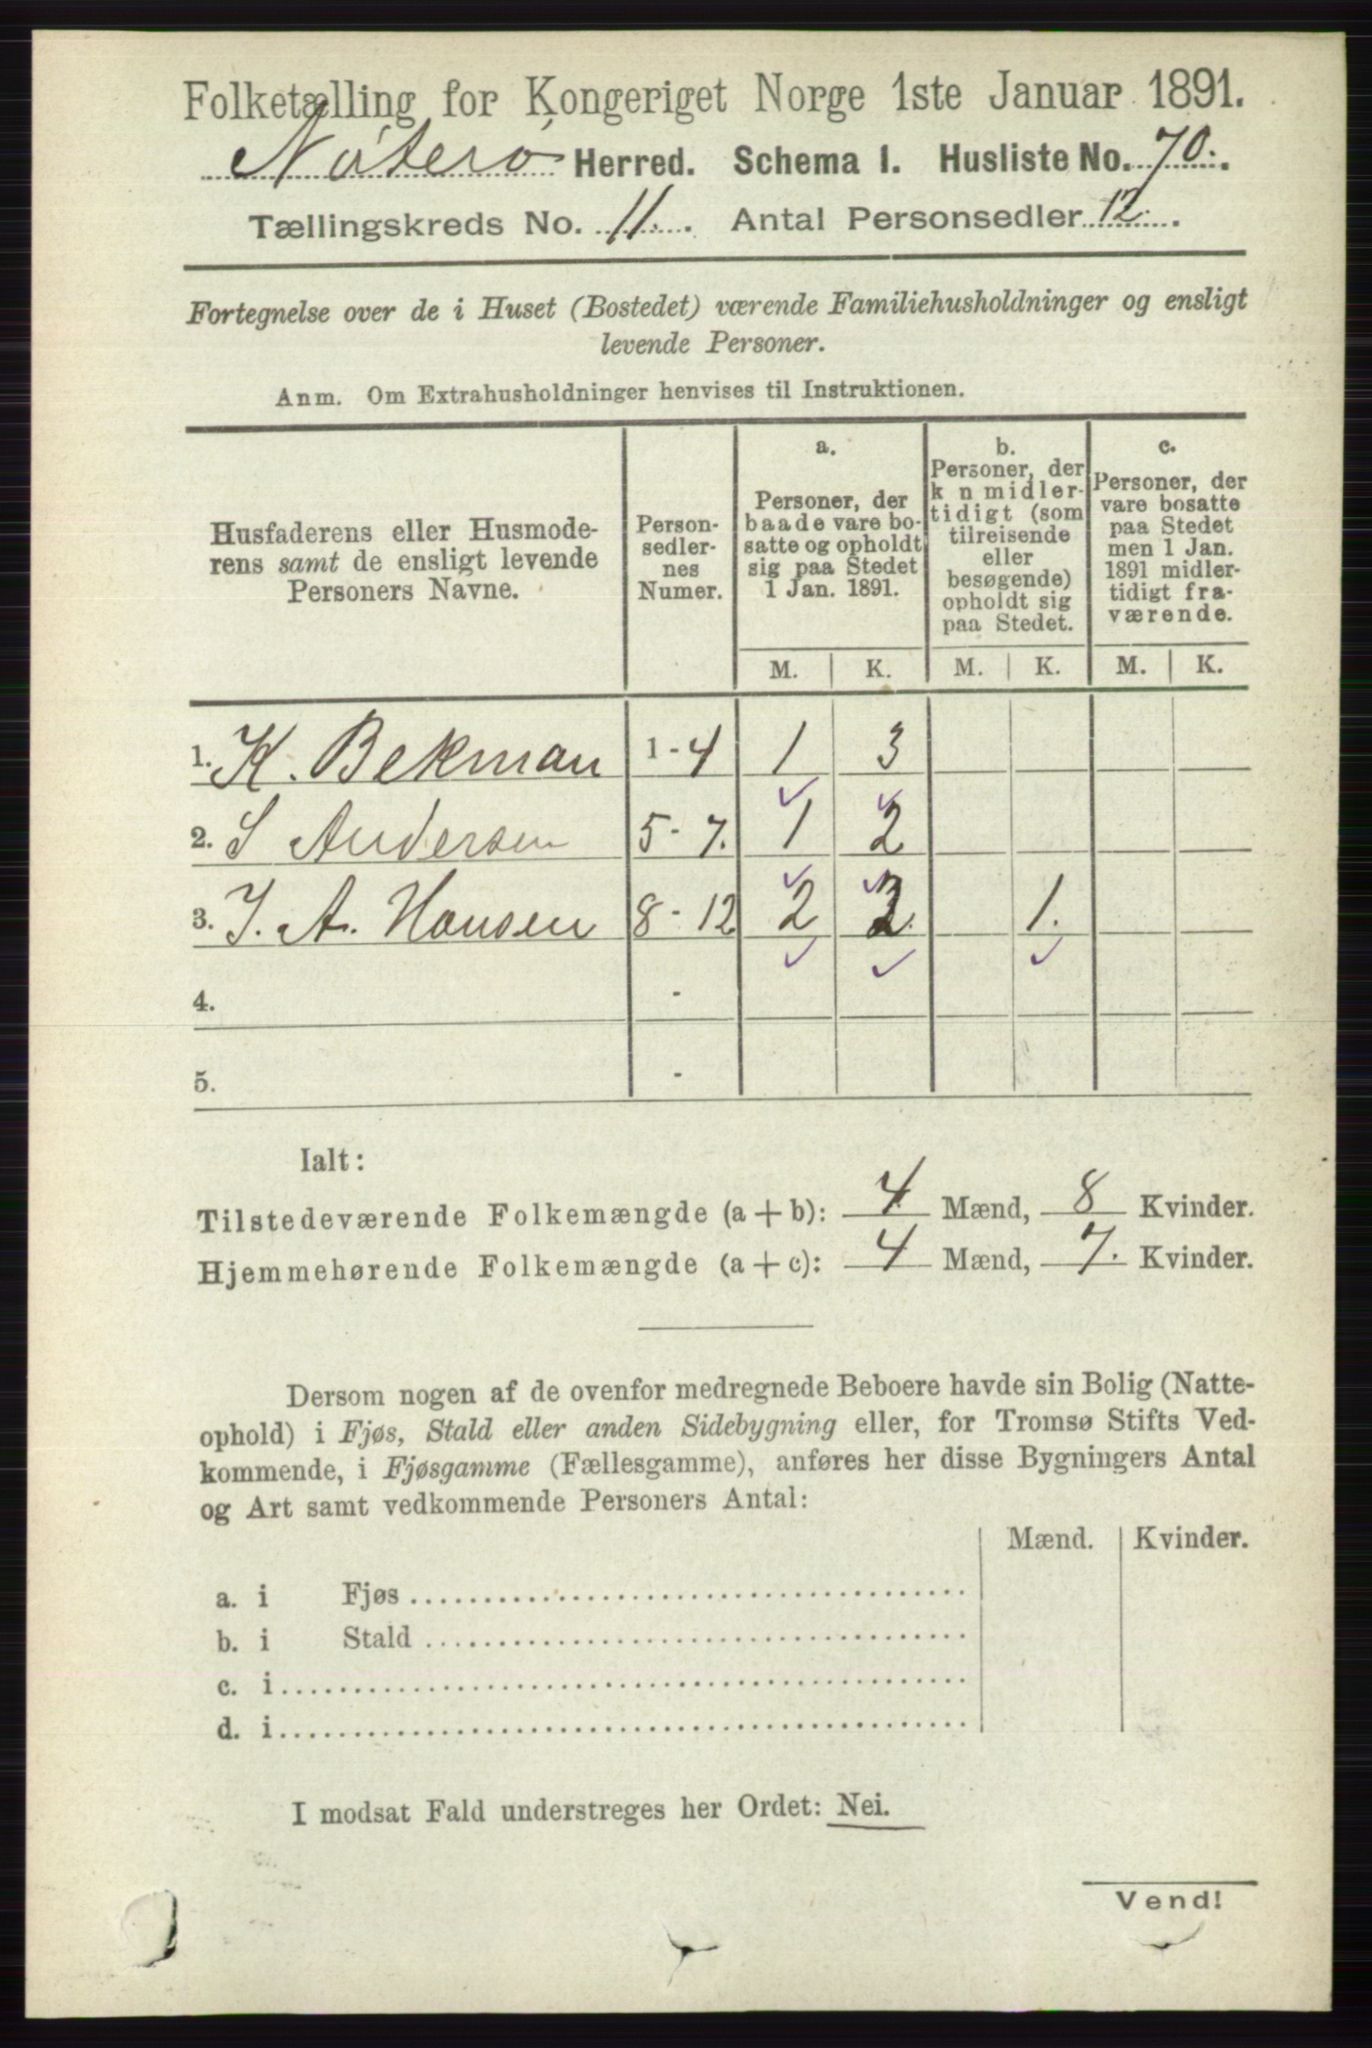 Folketælling for Kongeriget Norge 1ste Januar 1891.
Nøterø Herred. Schema 1. Husliste No. 70.
Tællingskreds No. 11. Antal Personsedler 12.
Fortegnelse over de i Huset (Bostedet) værende Familiehusholdninger og ensligt
levende Personer.
Anm. Om Extrahusholdninger henvises til Instruktionen.
Husfaderens eller Husmode-
rens samt de ensligt levende
Personers Navne.
Person-
sedler-
nes
Numer.
a.
Personer, der
baade vare bo-
satte og opholdt
sig paa Stedet
1 Jan. 1891.
b.
Personer, der
k n midler-
tidigt (som
tilreisende
eller
besøgende)
opholdt sig
paa Stedet.
c.
Personer, der
vare bosatte
paa Stedet
men 1 Jan.
1891 midler-
tidigt fra-
værende.
M. K. M. K. M. K.
1. K. Bekman 1-4 1 3
2. S Andersen 5-7. 1 2
3. J. A. Hansen 8-12 2 2. 1.
4. -
5. -
Ialt:
Tilstedeværende Folkemængde (a+b): 4 Mænd, 8 Kvinder.
Hjemmehørende Folkemængde (a+c): 4 Mænd, 7. Kvinder.
Dersom nogen af de ovenfor medregnede Beboere havde sin Bolig (Natte-
ophold) i Fjøs, Stald eller anden Sidebygning eller, for Tromsø Stifts Ved-
kommende, i Fjøsgamme (Fællesgamme), anføres her disse Bygningers Antal
og Art samt vedkommende Personers Antal:
Mænd. Kvinder.
a. i Fjøs
b. i Stald
c. i
d. i
I modsat Fald understreges her Ordet: Nei.
Vend!